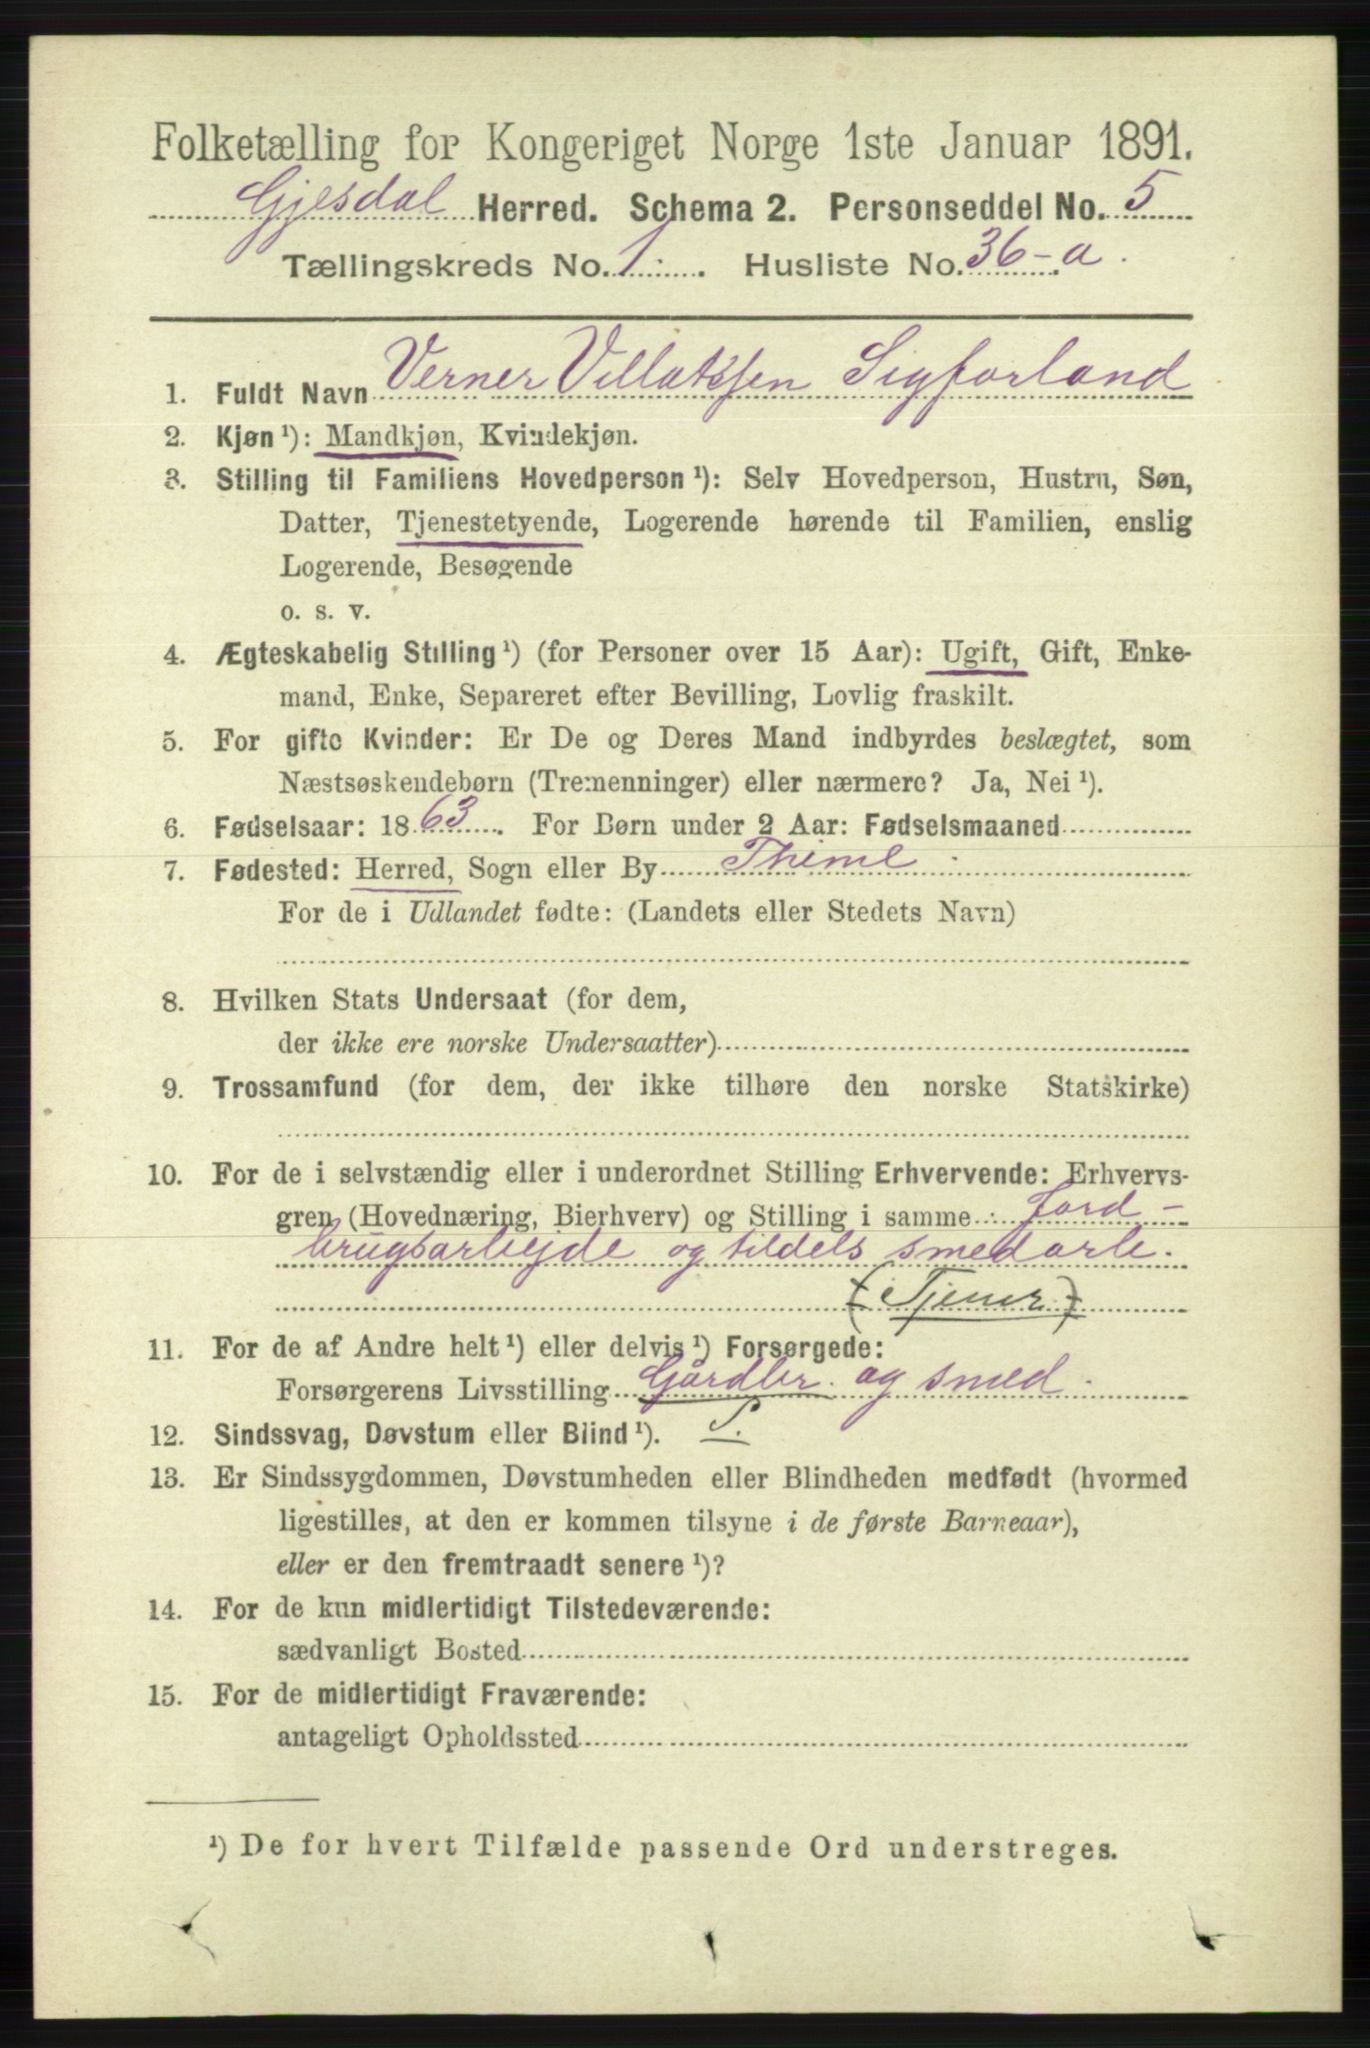 Folketælling for Kongeriget Norge 1ste Januar 1891.
Gjesdal Herred. Schema 2. Personseddel No. 5
Tællingskreds No. 1. Husliste No. 36-a.
1. Fuldt Navn Verner Villatssen Sigforland
2. Kjøn ¹): Mandkjøn, Kvindekjøn.
3. Stilling til Familiens Hovedperson ¹): Selv Hovedperson, Hustru, Søn,
Datter, Tjenestetyende, Logerende hørende til Familien, enslig
Logerende, Besøgende
o. s. v.
4. Ægteskabelig Stilling ¹) (for Personer over 15 Aar): Ugift, Gift, Enke-
mand, Enke, Separeret efter Bevilling, Lovlig fraskilt.
5. For gifte Kvinder: Er De og Deres Mand indbyrdes beslægtet, som
Næstsøskendebørn (Tremenninger) eller nærmere? Ja, Nei ¹).
6. Fødselsaar: 1863. For Børn under 2 Aar: Fødselsmaaned
7. Fødested: Herred, Sogn eller By Thime
For de i Udlandet fødte: (Landets eller Stedets Navn)
8. Hvilken Stats Undersaat (for dem,
der ikke ere norske Undersaatter)
9. Trossamfund (for dem, der ikke tilhøre den norske Statskirke)
10. For de i selvstændig eller i underordnet Stilling Erhvervende: Erhvervs-
gren (Hovednæring, Bierhverv) og Stilling i samme Jord-
brugsarbejde og tildels smedarb.
(Tjener)
11. For de af Andre helt ¹) eller delvis ¹) Forsørgede:
Forsørgerens Livsstilling Gårdbr. og smed.
12. Sindssvag, Døvstum eller Blind ¹). S.
13. Er Sindssygdommen, Døvstumheden eller Blindheden medfødt (hvormed
ligestilles, at den er kommen tilsyne i de første Barneaar),
eller er den fremtraadt senere ¹)?
14. For de kun midlertidigt Tilstedeværende:
sædvanligt Bosted
15. For de midlertidigt Fraværende:
antageligt Opholdssted
¹) De for hvert Tilfælde passende Ord understreges.